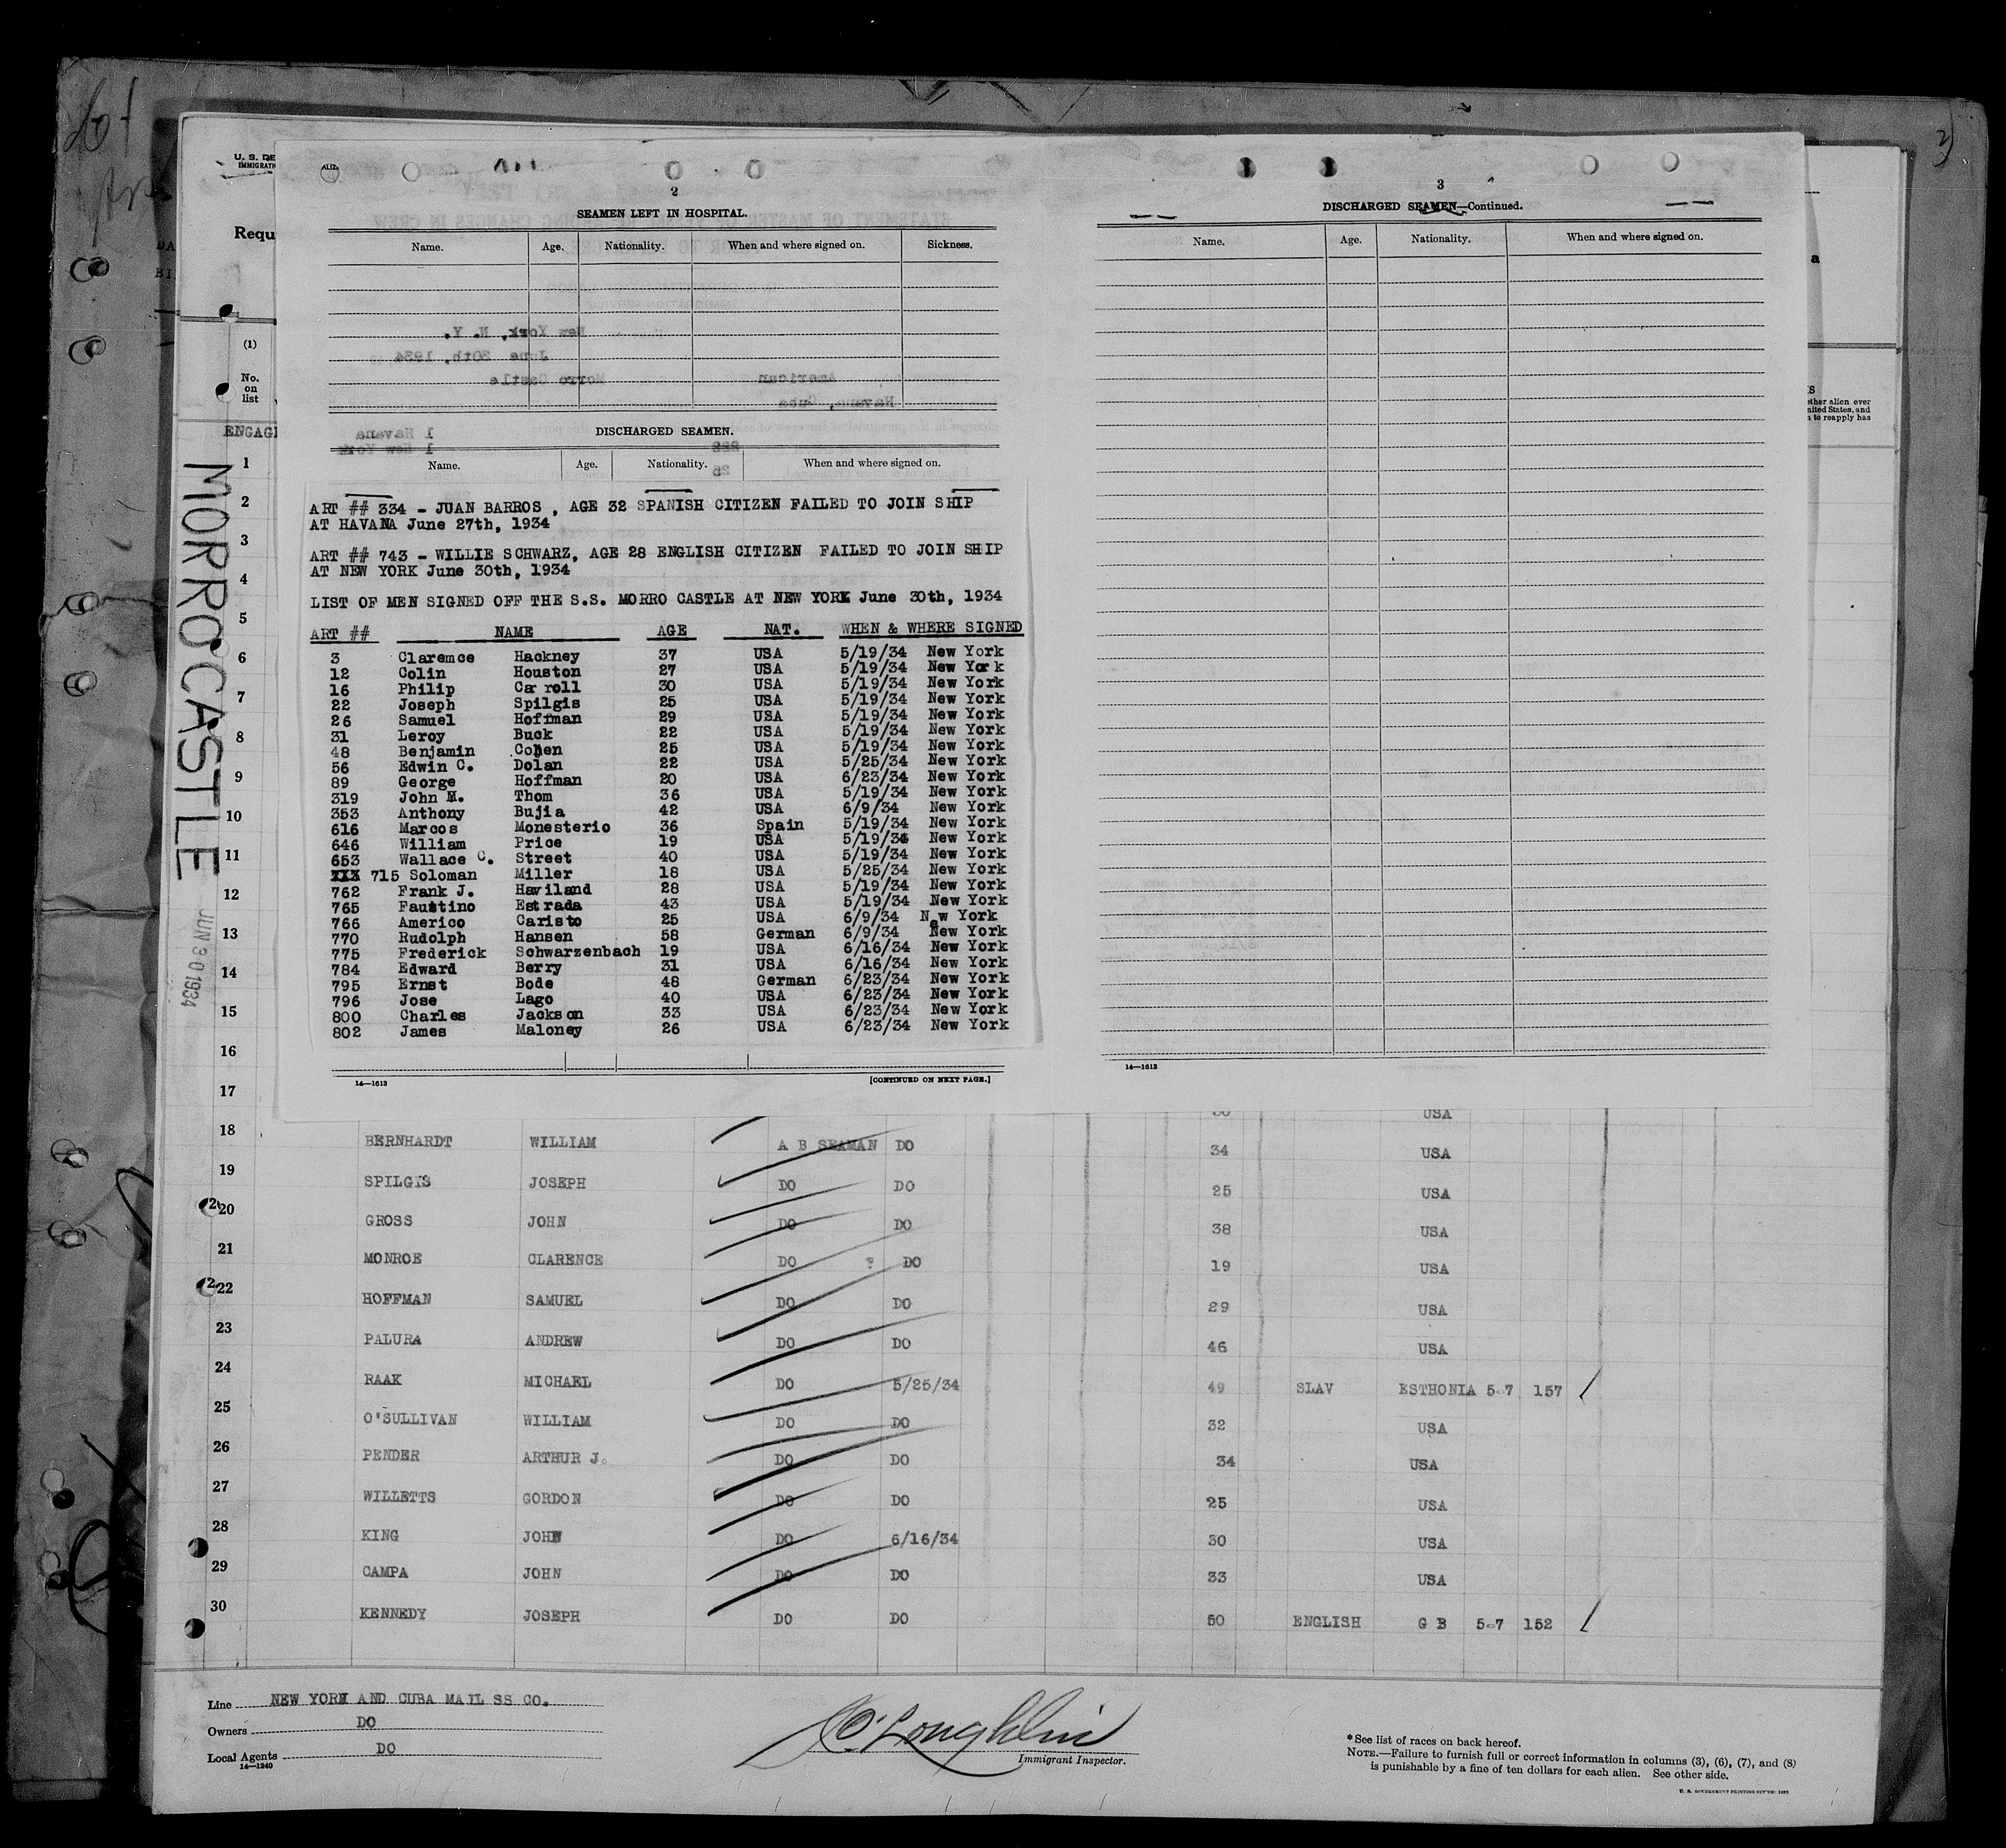 U. S. DE
IMMIGRAT
Requ
(1)
No.
on
list
ENGAG
MORRO CASTLE
JUN 30 1934
2
SEAMEN LEFT IN HOSPITAL.
Name. Age. Nationality. When and where signed on. Sickness.
New York, N. Y.
June 30th, 1934
American Morro Castle
Havana, Cuba
DISCHARGED SEAMEN.
1 Havana
1 New York
Name. Age. Nationality. When and where signed on.
ART ## 334 - JUAN BARROS , AGE 32 SPANISH CITIZEN FAILED TO JOIN SHIP
AT HAVANA June 27th, 1934
ART ## 743 - WILLIE SCHWARZ, AGE 28 ENGLISH CITIZEN FAILED TO JOIN SHIP
AT NEW YORK June 30th, 1934
LIST OF MEN SIGNED OFF THE S.S. MORRO CASTLE AT NEW YORK June 30th, 1934
ART ## NAME AGE NAT. WHEN & WHERE SIGNED
3 Claremce Hackney 37 USA 5/19/34 New York
12 Colin Houston 27 USA 5/19/34 New York
16 Philip Carroll 30 USA 5/19/34 New York
22 Joseph Spilgis 25 USA 5/19/34 New York
26 Samuel Hoffman 29 USA 5/19/34 New York
31 Leroy Buck 22 USA 5/19/34 New York
48 Benjamin Cohen 25 USA 5/19/34 New York
56 Edwin C. Dolan 22 USA 5/25/34 New York
89 George Hoffman 20 USA 6/23/34 New York
319 John M. Thom 36 USA 5/19/34 New York
353 Anthony Bujia 42 USA 6/9/34 New York
616 Marcos Monesterio 36 Spain 5/19/34 New York
646 William Price 19 USA 5/19/34 New York
653 Wallace C. Street 40 USA 5/19/34 New York
715 Soloman Miller 18 USA 5/25/34 New York
762 Frank J. Haviland 28 USA 5/19/34 New York
765 Faustino Estrada 43 USA 5/19/34 New York
766 Americo Caristo 25 USA 6/9/34 New York
770 Rudolph Hansen 58 German 6/9/34 New York
775 Frederick Schwarzenbach 19 USA 6/16/34 New York
784 Edward Berry 31 USA 6/16/34 New York
795 Ernst Bode 48 German 6/23/34 New York
796 Jose Lago 40 USA 6/23/34 New York
800 Charles Jackson 33 USA 6/23/34 New York
802 James Maloney 26 USA 6/23/34 New York
14—1613 [CONTINUED ON NEXT PAGE.]
3
DISCHARGED SEAMEN—Continued.
Name. Age. Nationality. When and where signed on.
14—1613
a
ether alien ever
nited States, and
to reapply has
1
2
3
4
5
6
7
8
9
10
11
12
13
14
15
16
17 USA
18 BERNHARDT WILLIAM A B SEAMAN DO 34 USA
19 SPILGIS JOSEPH DO DO 25 USA
20 GROSS JOHN DO DO 38 USA
21 MONROE CLARENCE DO ? DO 19 USA
22 HOFFMAN SAMUEL DO DO 29 USA
23 PALURA ANDREW DO DO 46 USA
24 RAAK MICHAEL DO 5/25/34 49 SLAV ESTHONIA 5-7 157
25 O'SULLIVAN WILLIAM DO DO 32 USA
26 PENDER ARTHUR J. DO DO 34 USA
27 WILLETTS GORDON DO DO 25 USA
28 KING JOHN DO 6/16/34 30 USA
29 CAMPA JOHN DO DO 33 USA
30 KENNEDY JOSEPH DO DO 50 ENGLISH G B 5-7 152
Line NEW YORK AND CUBA MAIL SS CO.
Owners DO
Local Agents DO
14—1240
O'Loughlin
Immigrant Inspector.
*See list of races on back hereof.
NOTE.—Failure to furnish full or correct information in columns (3), (6), (7), and (8)
is punishable by a fine of ten dollars for each alien. See other side.